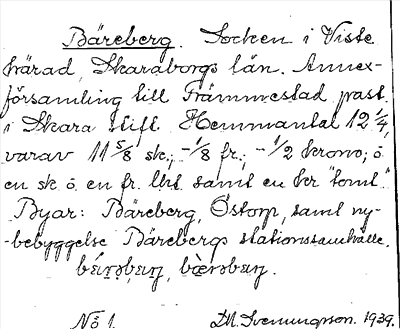 Bäreberg. Socken i Viste
härad, Skaraborgs län. Annex-
församling till Främmestad past.
i Skara stift. Hemmantal 12 1/4,
varav 11 5/8 sk., -1/8 fr., -1/2 krono, o
en sk. o. en fr. samt en kr "tomt".
Byar: Bäreberg, Östorp, samt ny-
-bebyggelse Bärebergs stationssamhälle.
No 1. D.M. Svenningson. 1939.